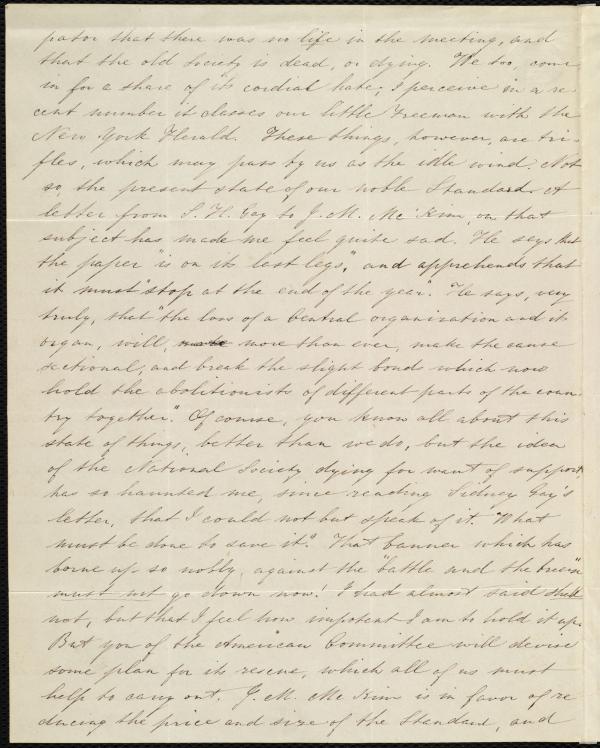 pator that there was no life in the meeting, and
that the old Society is dead, or dying. We too, come
in for a share of its cordial hate; I perceive in a re-
cent number it classes our little Freeman with the
New York Herald. These things, however, are tri-
fles, which may pass by us as the idle wind. Not
so, the present state of our noble Standard. A
letter from S. H. Gay to J. M. McKim, on that
subject has made me feel quite sad. He says that
the paper "is on its last legs", and apprehends that
it must "stop at the end of the year". He says, very
truly, that "the loss of a central organization and its
organ, will, more than ever, make the cause
sectional, and break the slight bond which now
hold the abolitionists of different parts of the coun-
try together". Of course, you know all about this
state of things, better than we do, but the idea
of the National Society dying for want of support,
has so haunted me, since reading Sidney Gay's
letter, that I could not but speak of it. "What
must be done to save it". That banner which has
borne up so nobly, against the "battle and the breeze"
must not go down now! I had almost said shall
not, but that I feel how impotent I am to hold it up.
But you of the American Committee will devise
some plan for its rescue, which all of us must
help to carry out. J. M. McKim is in favor of re
ducing the price and size of the Standard, and